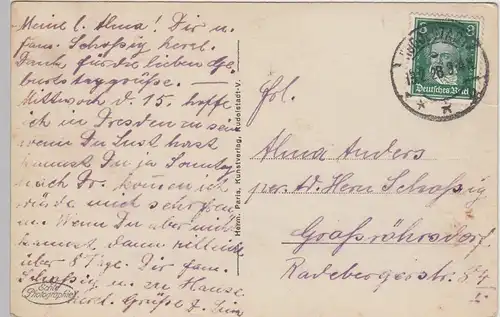 Meine l. Alma! Dir u.
fam. Schoßig herzl.
Dank für die lieben Ge-
burtstaggrüße. —
Mittwoch d. 15. hoffe
ich in Dresden zu sein
wenn Du Lust hast
kannst Du ja Sonntag
nach Dr. kommen ich
würde mich sehr freu-
n. Wenn Du aber nicht
kannst dann
über 8 Tage. Dir fam.
Schoßig u. zu Hause
herzl. Grüße d.
Echte
Photographie
Herm. Paris, Kunstverlag, Rudolstadt-V.
3
Deutsches Reich
Frl.
Alma Anders
per. Ad. Herrn Schoßig
Großröhrsdorf
Radebergerstr.